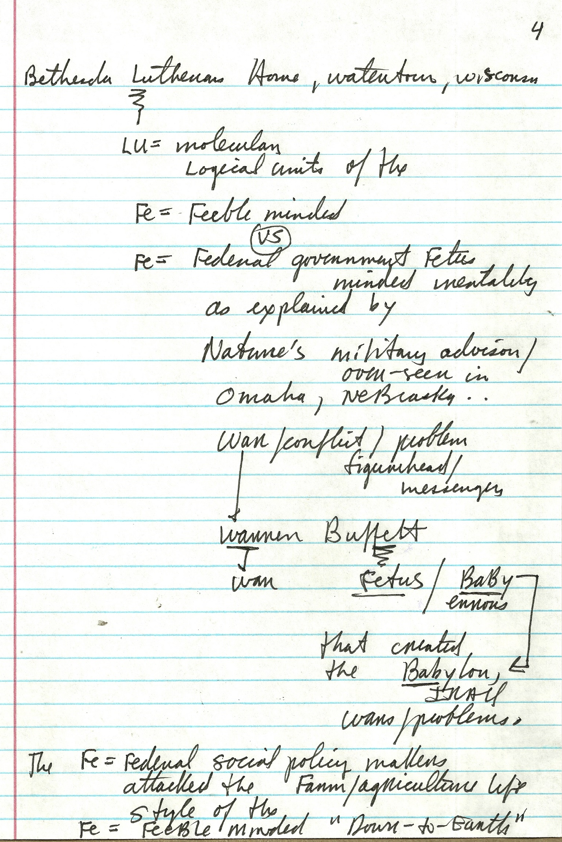 4
Bethesda Lutherans Home, watertown, wisconsin
LU= molecular
Logical units of the
Fe= Feeble minded
VS
Fe= Federal government Fetus
minded mentality
as explained by
Nature's military advisor/
over-seer in
Omaha, NeBrasky..
War/conflict/problem
figurehead/
messengers
Warren Buffett
war Fetus / BaBy
errors
that created
the Babylon,
IRAQ
wars/problems.
The Fe= Federal social policy makers
attacked the Farm/agriculture life
style of the
Fe = FeeBle minded "Down-to-Earth"